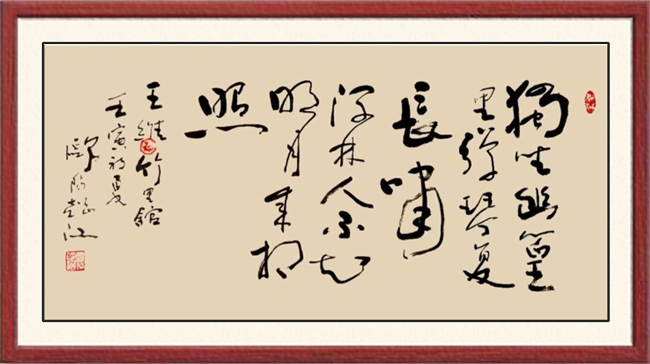 獨坐幽篁
里彈琴复
長嘯
深林人不知
明月来相
照
王維竹里館
壬寅初夏
歐陽